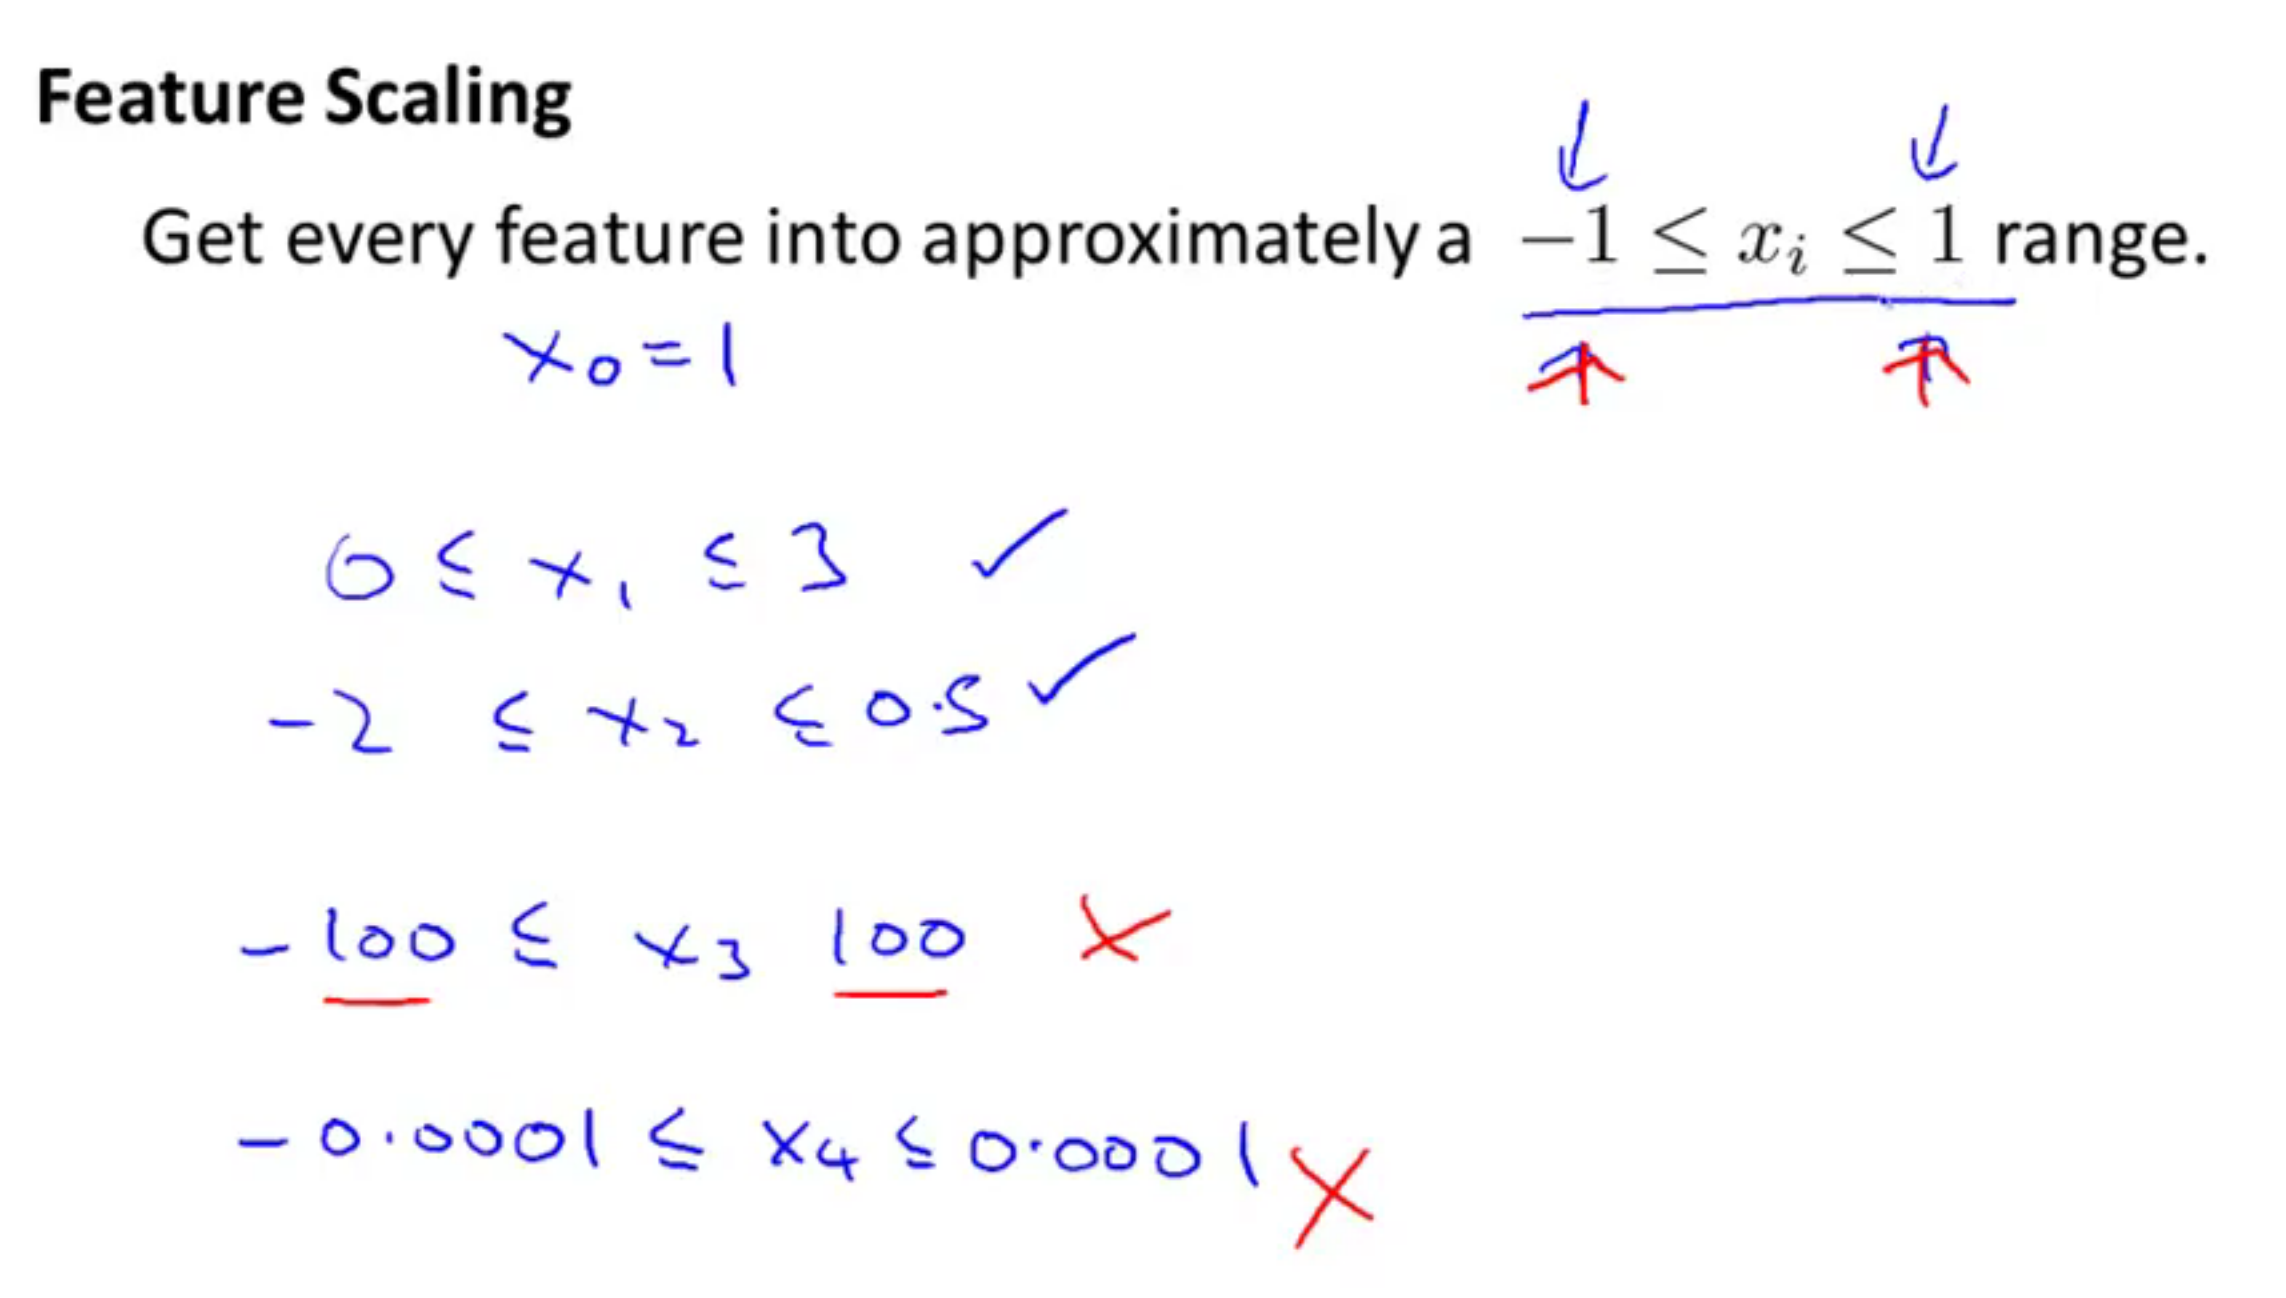 Feature Scaling
Get every feature into approximately a −1 ≤ xᵢ ≤ 1 range.
x₀ = 1
0 ≤ x₁ ≤ 3 ✓
-2 ≤ x₂ ≤ 0.5 ✓
-100 ≤ x₃ 100 ✗
-0.0001 ≤ x₄ ≤ 0.0001 ✗